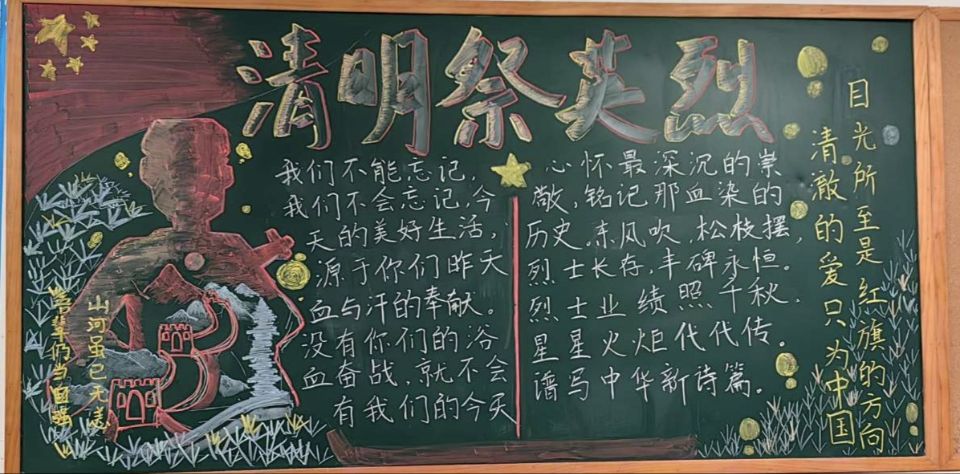 清明祭英烈
我们不能忘记，
我们不会忘记，今
天的美好生活，
源于你们昨天
血与汗的奉献。
没有你们的浴
血奋战，就不会
有我们的今天
心怀最深沉的崇
敬，铭记那血染的
历史。东风吹，松枝摆，
烈士长存，丰碑永恒。
烈士业绩照千秋，
星星火炬代代传。
谱写中华新诗篇。
目光所至是红旗的方向
清澈的爱只为中国
山河虽已无恙
吾辈仍当自强